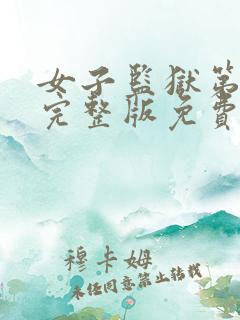 女子監獄第
完整版免費
穆卡姆
未经同意禁止转载